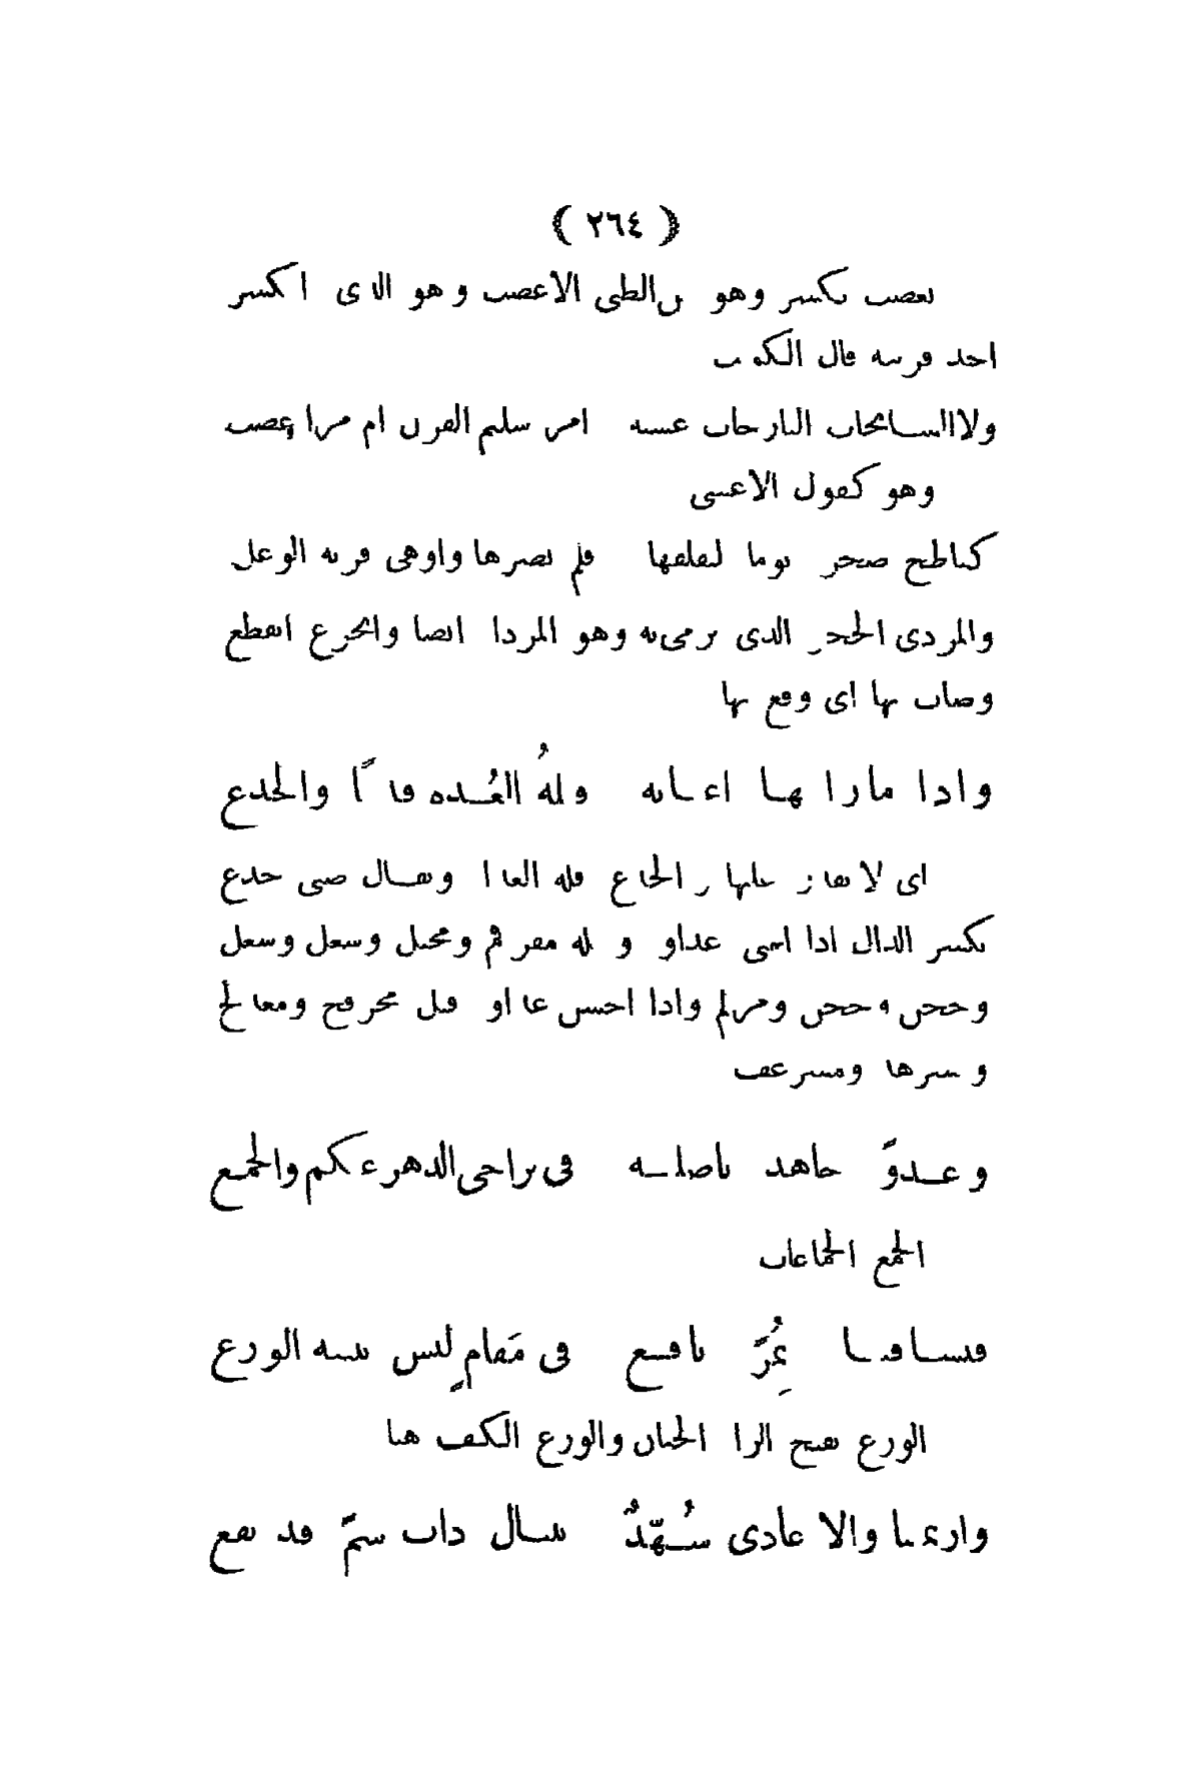 ﴿ ٢٦٤ ﴾
تعضب تكسر وهو من الظبى الاعضب وهو الذى انكسر
احد قرنيه قال الكميت
ولا السانحات البارحات عشية امر سليم القرن ام مر اعضب
وهو كقول الاعشى
كناطح صخرة يوما ليفلقها فلم يضرها واوهى قرنه الوعل
والمردى الحجر الذى يرمى به وهو المرداة ايضا وانجزع انقطع
وصاب بها اى وقع بها
واذا مارامها اعيابه قلة العُدة قدمًا والجدع
اى لا يقدر عليها الجدع قلة الغذاء ويقال صبى جدع
بكسر الدال اذا اسىء غذاؤه ومثله مقرقم ومحثل وسغل وسغل
وجحن وجحن واذا احسن غذاؤه قيل مخرفج
ومسرهد ومسرعف
وعدوّ جاهد ناضلته فى تراخى الدهر عنكم والجمع
الجمع الجماعات
فتساقينا بمُرّ ناقع فى مَقامٍ ليس يثنيه الورع
الورع بفتح الراء الجبان والورع الكف هنا
وارتمينا والاعادى شُهّدٌ بنبال ذات سمّ قد نقع